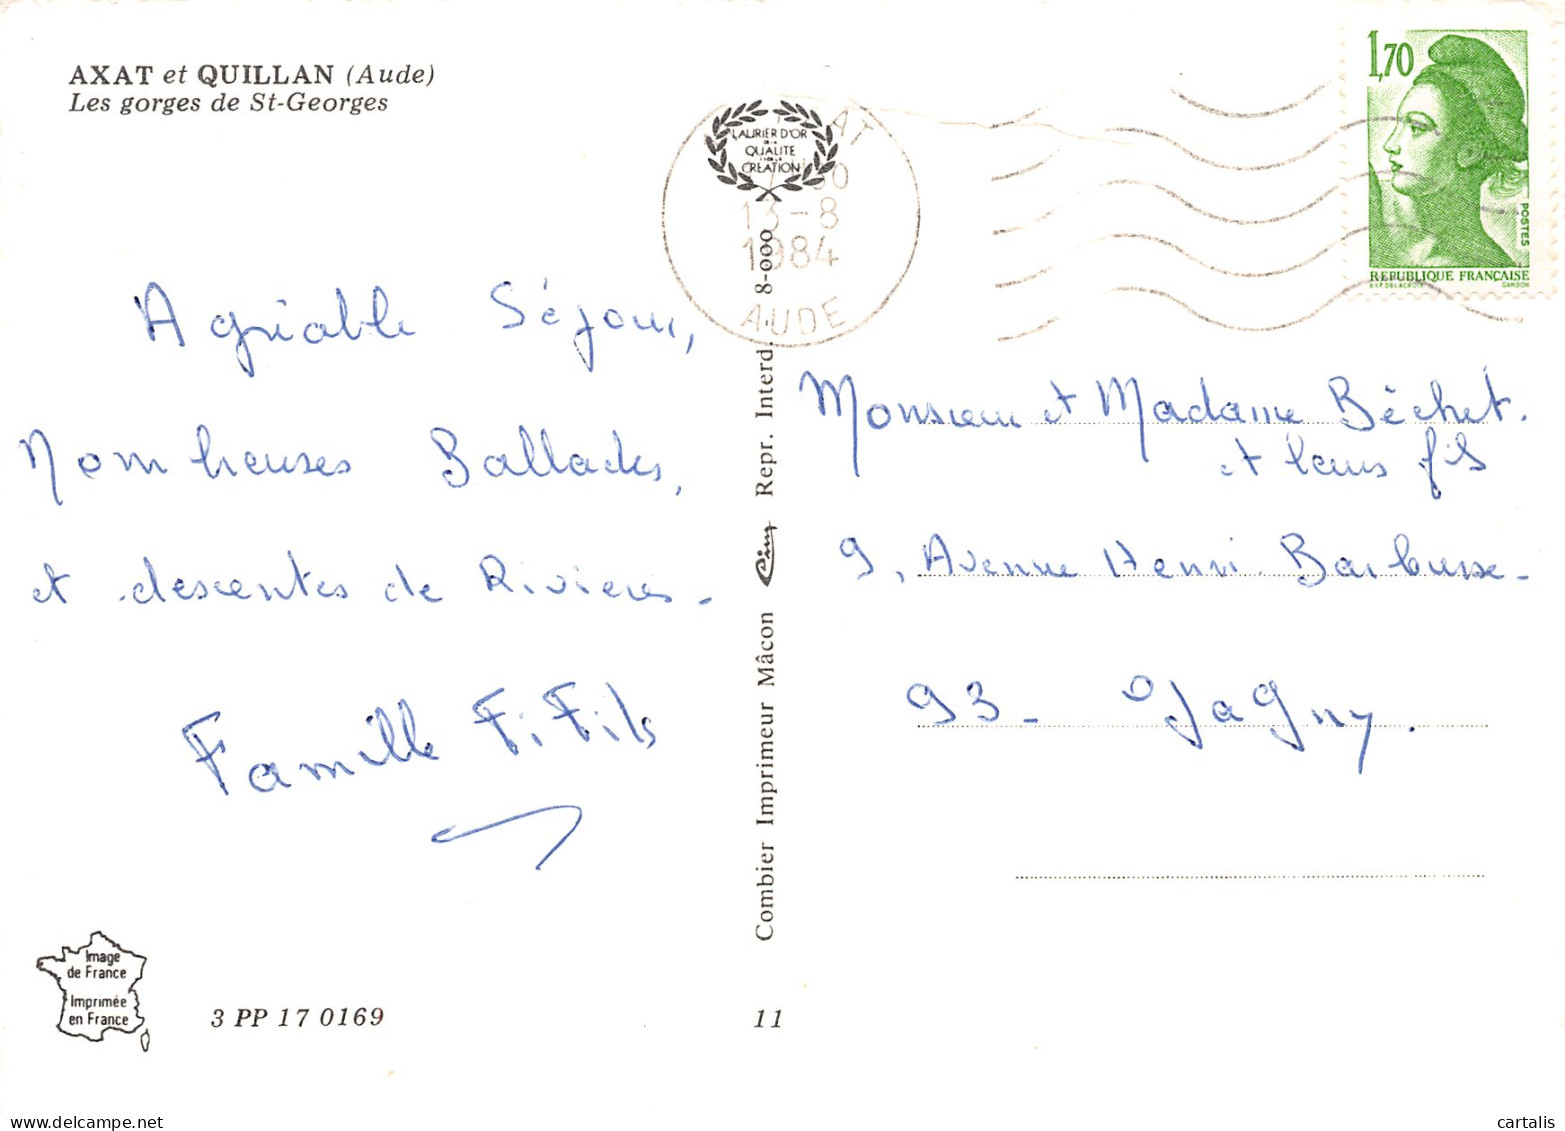 AXAT et QUILLAN (Aude)
Les gorges de St-Georges
LAURIER D'OR
DE LA
QUALITÉ
CRÉATION
AT
13-8
1984
AUDE
1,70
POSTES
REPUBLIQUE FRANÇAISE
EXP. DELACROIX GANDON
Agréable Séjour,
Nombreuses Ballades,
et descentes de Rivieres.
Famille
Monsieur et Madame Béchet.
et leurs fils
9, Avenue Henri Barbusse-
93- Gagny.
Combier Imprimeur Mâcon Cim Repr. Interd. 8-000
Image
de France
Imprimée
en France
3 PP 17 0169
11
cartalis
delcampe.net